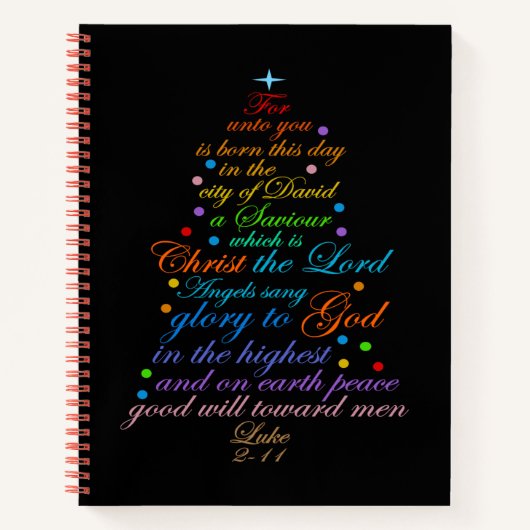 For
unto you
is born this day
in the
city of David
a Saviour
which is
Christ the Lord
Angels sang
glory to God
in the highest
and on earth peace
good will toward men
Luke
2-11